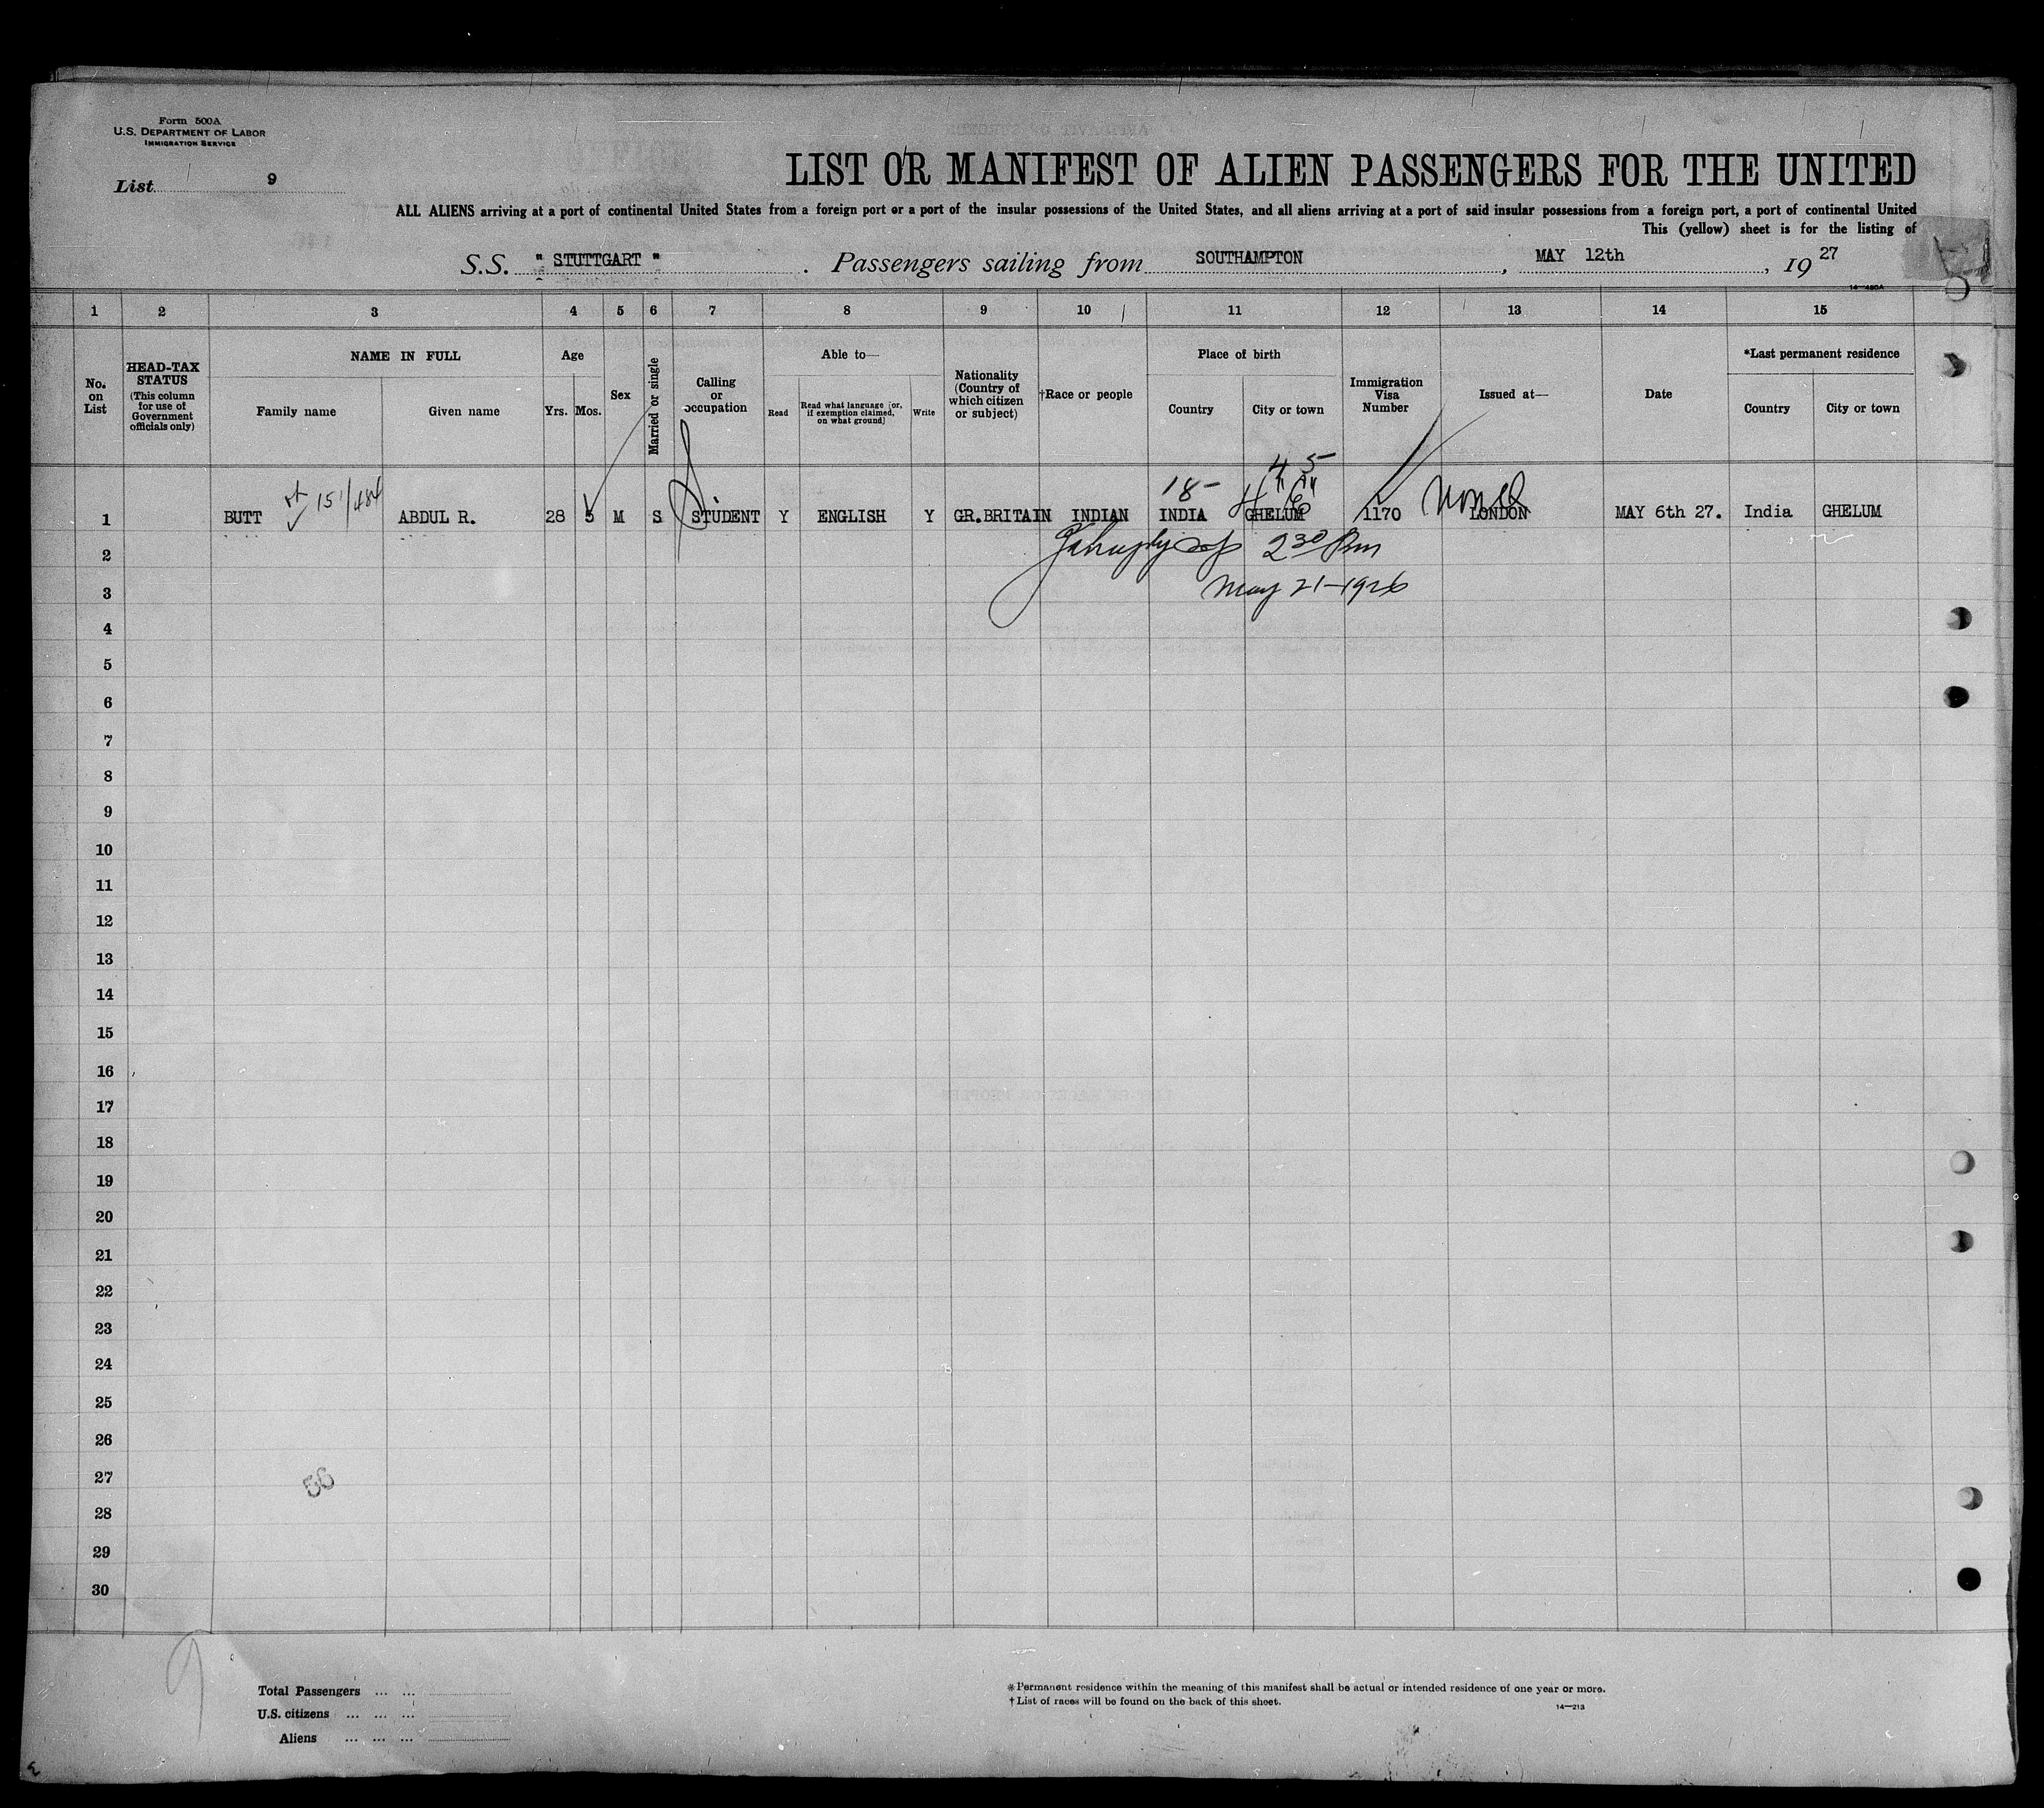 Form 500A
U.S. DEPARTMENT OF LABOR
IMMIGRATION SERVICE
List 9
LIST OR MANIFEST OF ALIEN PASSENGERS FOR THE UNITED
ALL ALIENS arriving at a port of continental United States from a foreign port or a port of the insular possessions of the United States, and all aliens arriving at a port of said insular possessions from a foreign port, a port of continental United
This (yellow) sheet is for the listing of
S.S. " STUTTGART " . Passengers sailing from SOUTHAMPTON , MAY 12th , 19 27
14—480A
1 2 3 4 5 6 7 8 9 10 11 12 13 14 15
No. on List
HEAD-TAX STATUS (This column for use of Government officials only)
NAME IN FULL
Family name
Given name
Age
Yrs. Mos.
Sex
Married or single
Calling or occupation
Able to—
Read
Read what language [or, if exemption claimed, on what ground]
Write
Nationality (Country of which citizen or subject)
†Race or people
Place of birth
Country
City or town
Immigration Visa Number
Issued at—
Date
*Last permanent residence
Country
City or town
4 5
15 1/484 18-
1 BUTT ABDUL R. 28 5 M S STUDENT Y ENGLISH Y GR.BRITAIN INDIAN INDIA GHELUM 1170 LONDON MAY 6th 27. India GHELUM
2 2 30 Pm
3 May 21-1926
4
5
6
7
8
9
10
11
12
13
14
15
16
17
18
19
20
21
22
23
24
25
26
27
56
28
29
30
9
Total Passengers ... ...
U.S. citizens ... ... ...
Aliens ... ... ...
*Permanent residence within the meaning of this manifest shall be actual or intended residence of one year or more.
†List of races will be found on the back of this sheet.
14—213